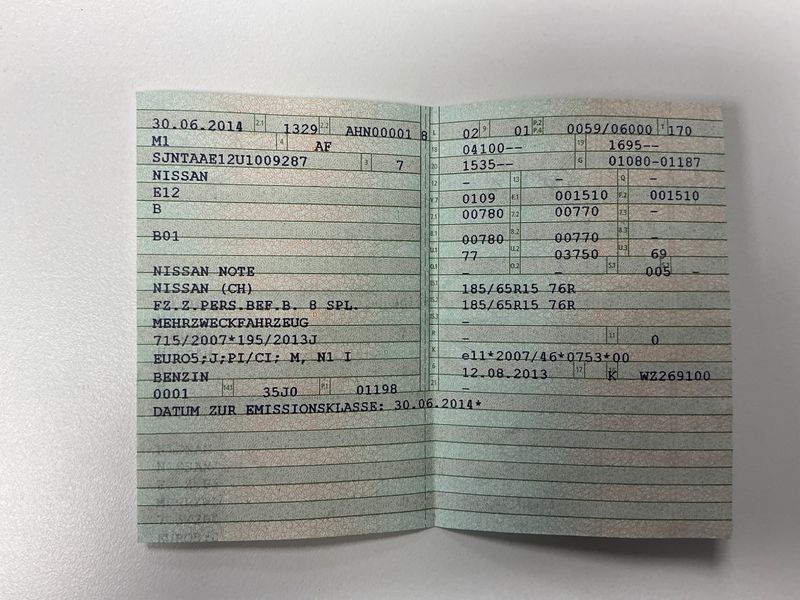 30.06.2014 2.1 1329 2.2 AHN00001 8
M1 4 AF
SJNTAAE12U1009287 3 7
NISSAN
E12
B
B01
NISSAN NOTE
NISSAN (CH)
FZ.Z.PERS.BEF.B. 8 SPL.
MEHRZWECKFAHRZEUG
715/2007*195/2013J
EURO5;J;PI/CI; M, N1 I
BENZIN
0001 14.1 35J0 P.1 01198
DATUM ZUR EMISSIONSKLASSE: 30.06.2014*
L 02 9 01 P.2 P.4 0059/06000 T 170
18 04100-- 19 1695--
20 1535-- G 01080-01187
12 - 13 - Q -
V.7 0109 F.1 001510 F.2 001510
7.1 00780 7.2 00770 7.3 -
8.1 00780 8.2 00770 8.3 -
U.1 77 U.2 03750 U.3 69
O.1 - O.2 - S.1 005 S.2 -
185/65R15 76R
185/65R15 76R
-
R - 11 0
K e11*2007/46*0753*00
6 12.08.2013 17 K 16 WZ269100
21 -